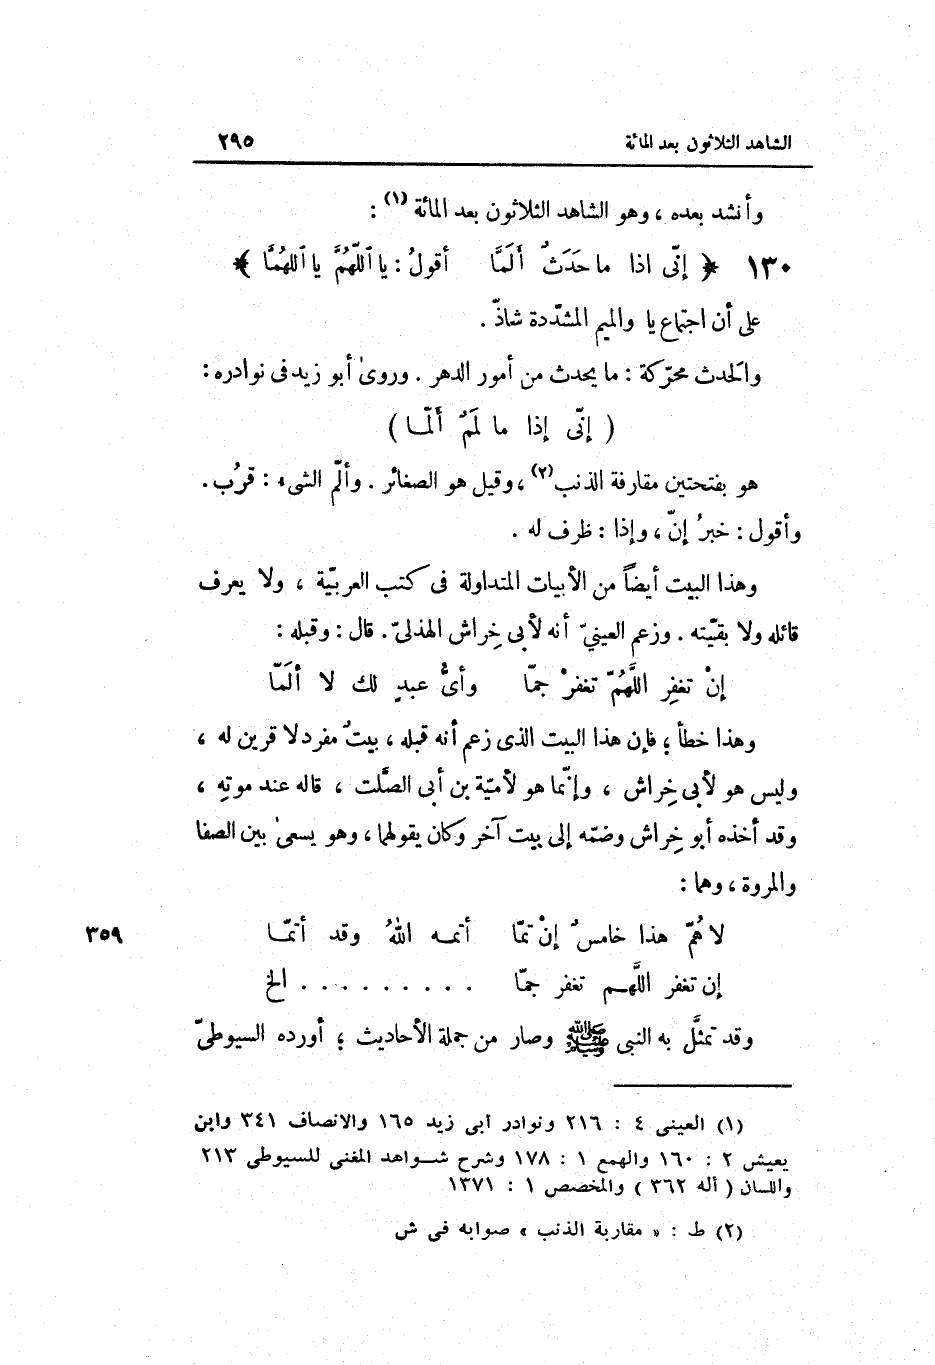 الشاهد الثلاثون بعد المائة ٢٩٥
وأنشد بعده ، وهو الشاهد الثلاثون بعد المائة (١) :
١٣٠ ﴿ إنّى اذا ما حَدَثٌ أَلَمَّا أقولُ : يا ٱللّهُمَّ يا ٱللهُمَّا ﴾
على أن اجتماع يا والميم المشدّدة شاذّ .
والحَدث محرّكة : ما يحدث من أمور الدهر . وروىٰ أبو زيد فى نوادره :
( إنّى إذا ما لَمَمٌ أَلّمــا )
هو بفتحتين مقارفة الذنب (٢) ، وقيل هو الصغائر . وألّم الشىء : قرُب .
وأقول : خبرُ إنّ ، وإذا : ظرف له .
وهذا البيت أيضاً من الأبيات المتداولة فى كتب العربيّة ، ولا يعرف
قائله ولا بقيّته . وزعم العينيّ أنه لأبى خِراش الهذلىّ . قال : وقبله :
إنْ تغفِرِ اللَّهُمّ تغفرْ جمّا وأىُّ عبدٍ لك لا ألَمّا
وهذا خطأ ؛ فإن هذا البيت الذى زعم أنه قبله ، بيتٌ مفرد لا قرين له ،
وليس هو لأبى خِراش ، وإنّما هو لأميّة بن أبى الصَّلت ، قاله عند موتهِ ،
وقد أخذه أبو خِراش وضمّه إلى بيت آخر وكان يقولهما ، وهو يسعىٰ بين الصفا
والمروة ، وهما :
لا هُمّ هذا خامسٌ إنْ تمّا أتمــه اللهُ وقد أتمّــا ٣٥٩
إن تغفر اللَّهــم تغفر جمّا . . . . . . . . . الخ
وقد تمثَّل به النبى ﷺ وصار من جملة الأحاديث ؛ أورده السيوطىّ
(١) العينى ٤ : ٢١٦ ونوادر أبى زيد ١٦٥ والانصاف ٣٤١ وابن
يعيش ٢ : ١٦٠ والهمع ١ : ١٧٨ وشرح شــواهد المغنى للسيوطى ٢١٣
واللسان ( أله ٣٦٢ ) والمخصص ١ : ١٣٧١
(٢) ط : « مقاربة الذنب » صوابه فى ش